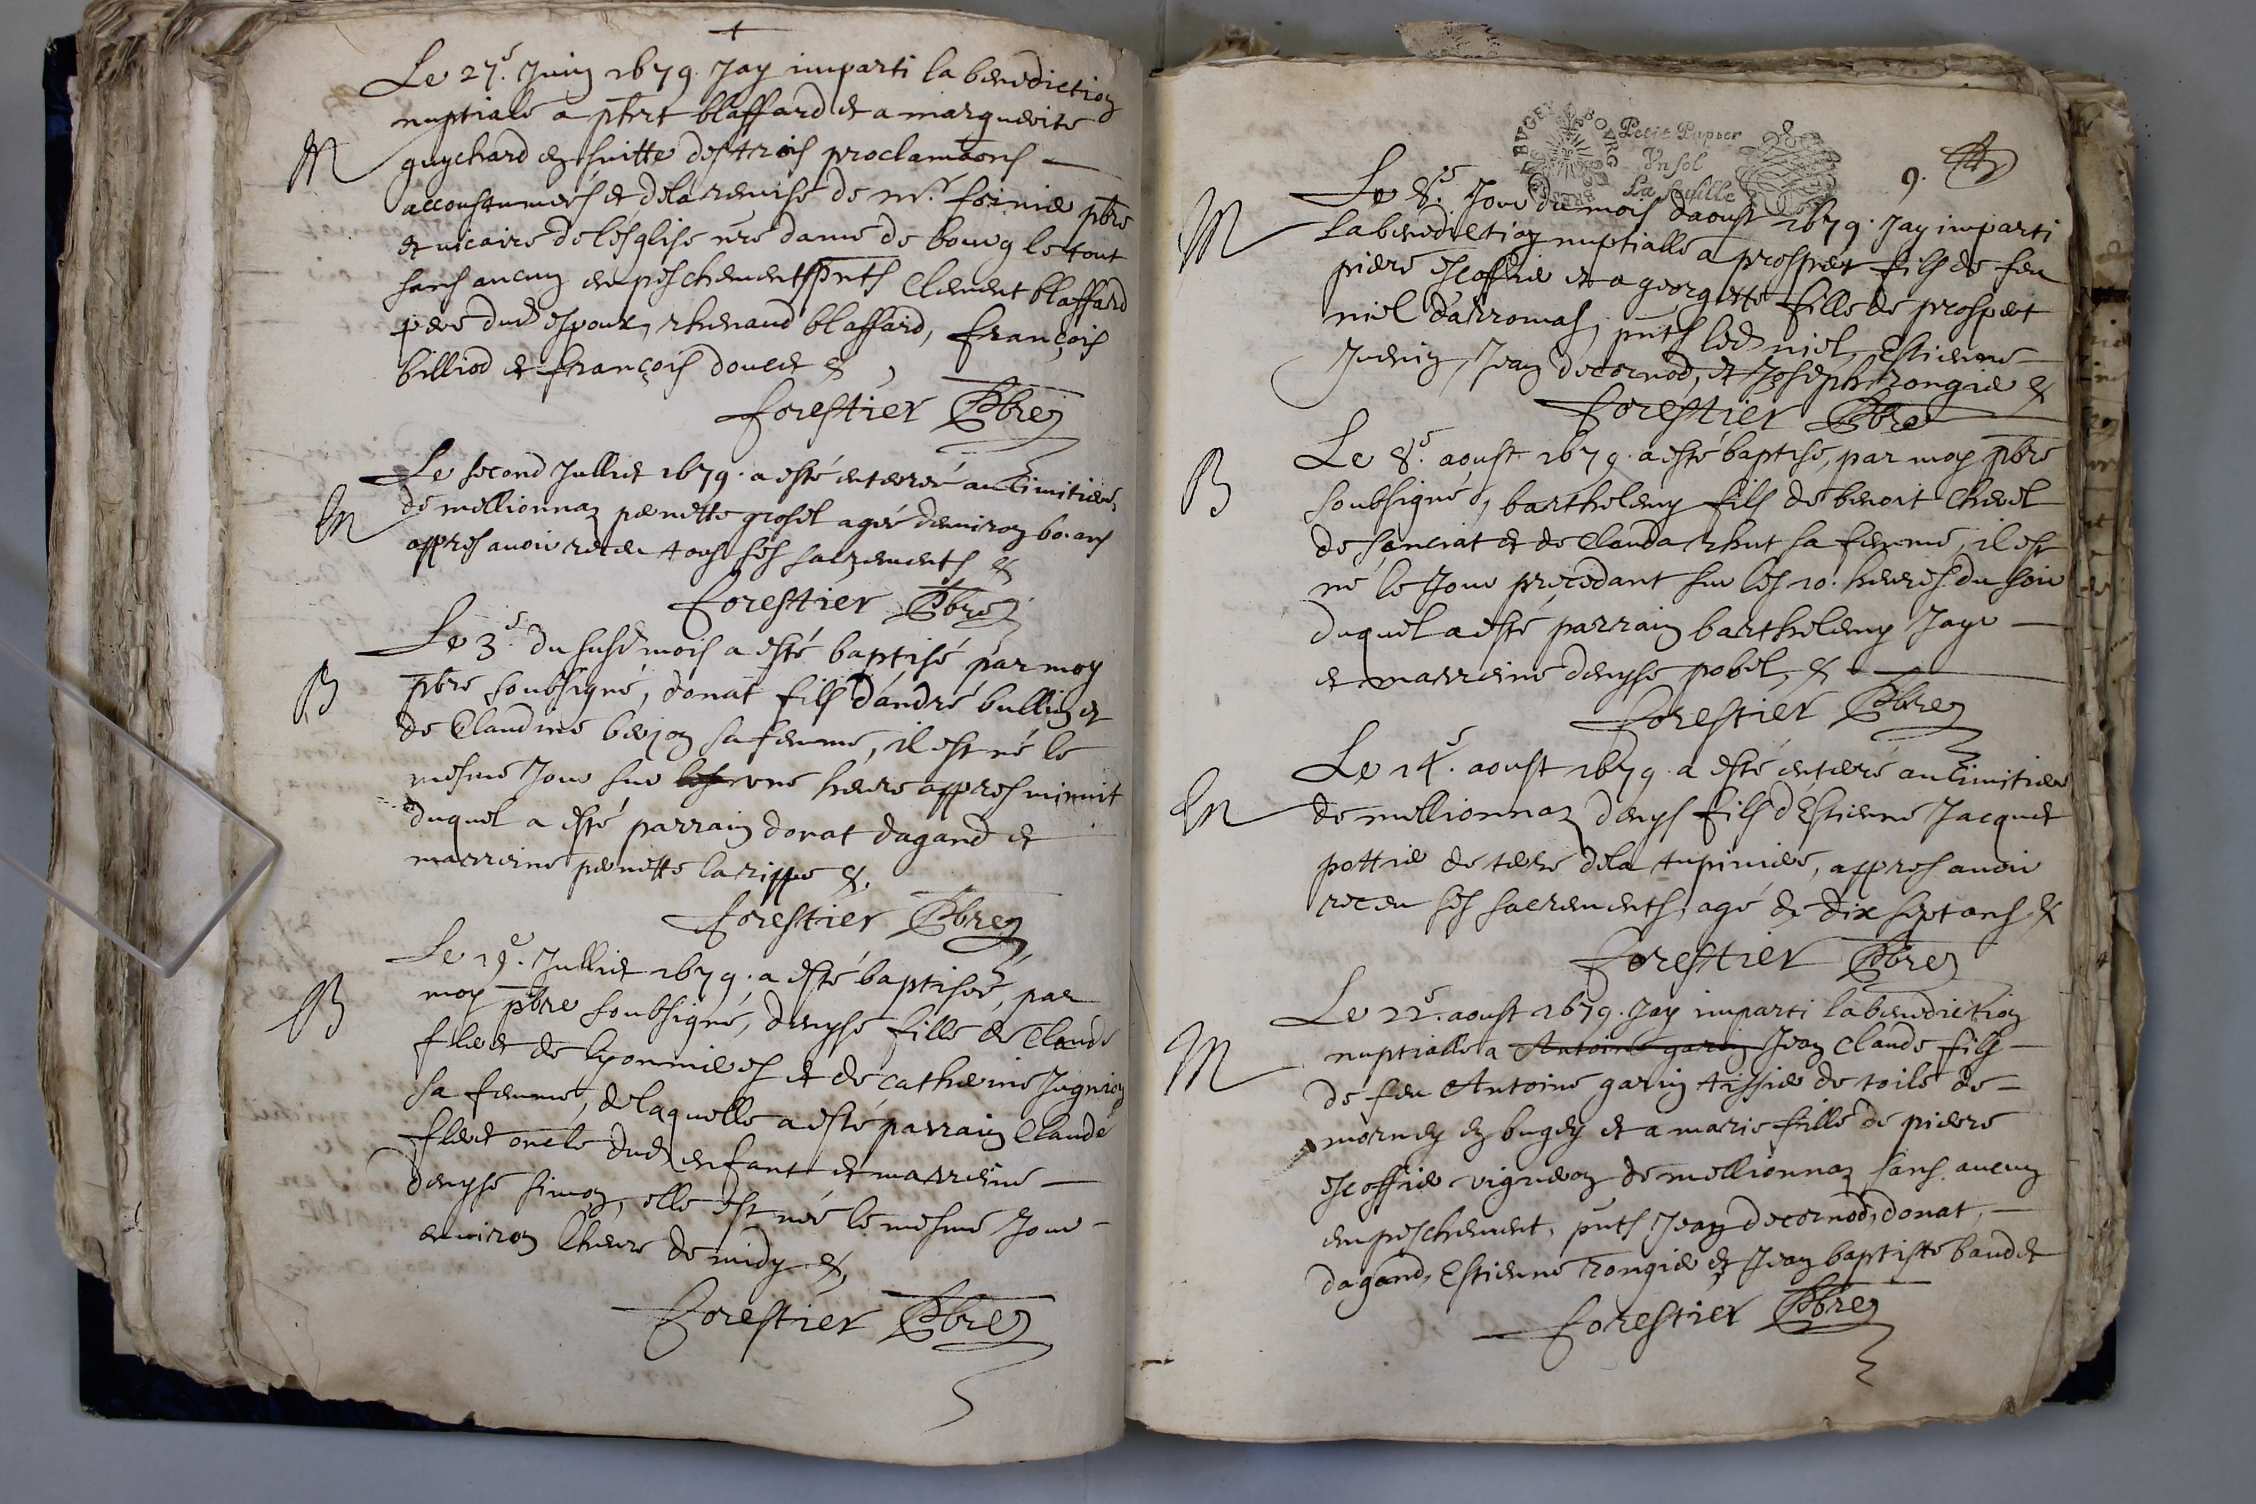 Le 27.e Juin 1679. Jay imparti la benediction
nuptiale a phrt blaffard et a marguerite
M
guychard en suitte des trois proclamaons
accoustumées et dela remise de mr. foinie pbre
et vicaire de lesglise nre dame de bourg le tout
sans aucun empeschement pnts Clement blaffard
pere dud espoux, rhenaud blaffard, françois
billiod et françois doucet &
forestier Pbre
Le second Julliet 1679. a esté enterré au Cimitiere
M
de mellionnaz pernette grosel agée denviron 60. ans
appres avoir receu tous ses sacrements &
forestier Pbre
Le 3.e du susd mois a esté baptisé par moy
B
pbre soubsigné, donat fils dandré bullin et
de Claudine bejon sa femme, il est né le
mesme Jour sur les une heure appres minuit
duquel a esté parrain donat dagand et
marreine pernette larippe &.
forestier Pbre
Le 19.e Julliet 1679. a esté baptisée, par
B
moy pbre soubsigné, denyse fille de Claude
fleet de lyonnieres et de catherine Jugnion
sa femme, de laquelle a esté parrain Claude
fleet oncle dud enfant et marreine
denyse simon, elle est née le mesme Jour
environ lheure de midy &,
forestier Pbre
BVGEY BOVRG
Petit Papier
Vn sol
La feuille
9.
Le 8.e Jour du mois daoust 1679. Jay imparti
M
la benediction nuptialle a prosper fils de feu
piere escoffier et a georgette fille de prosper
niel darromas, pnts led niel, Estienne
Juenin, Jean decornod, et Joseph rongier &
forestier Pbre
Le 8.e aoust 1679. a esté baptisé, par moy pbre
B
soubsigné, barthelemy fils de benoit Chevel
de sanciat et de Clauda rhut sa femme, il est
né le Jour precedant sur les 10. heures du soir
duquel a esté parrain barthelemy Jayr
et marreine denyse pobel, &
forestier Pbre
Le 14.e aoust 1679. a esté enterré au Cimitiere
M
de mellionnaz denys fils dEstienne Jacquet
pottier de terre dela tupiniere, appres avoir
receu ses sacrements, agé de dix sept ans &
forestier Pbre
Le 22.e aoust 1679. Jay imparti la benediction
M
nuptialle a Antoine garin Jean Claude fils
de feu Antoine garin tissier de toile de
mornay en bugey et a marie fille de piere
escoffier vigneron de mellionnaz sans aucun
empeschement, pnts Jean decornod, donat,
dagand, Estienne rongier et Jean baptiste baudet
forestier Pbre